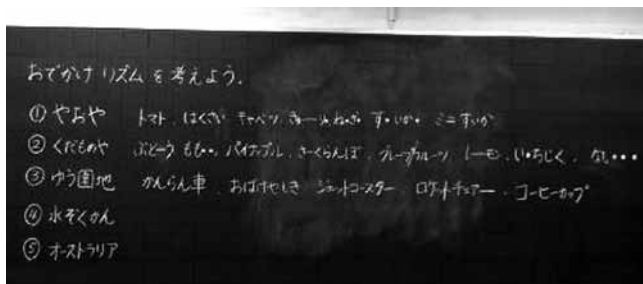 おでかけリズムを考えよう.
① やおや トマト、はくさい キャベツ、きゅーり、ねぎ す・いか・ ミニすいか
② くだものや ぶどーう もも・・、パイナップル、さーくらんぼ、グレープフルーツ、レーモン、い・ちじく、なし・・・
③ ゆう園地 かんらん車、おばけやしき ジェットコースター、ロケットチェアー、コーヒーカップ
④ 水ぞくかん
⑤ オーストラリア